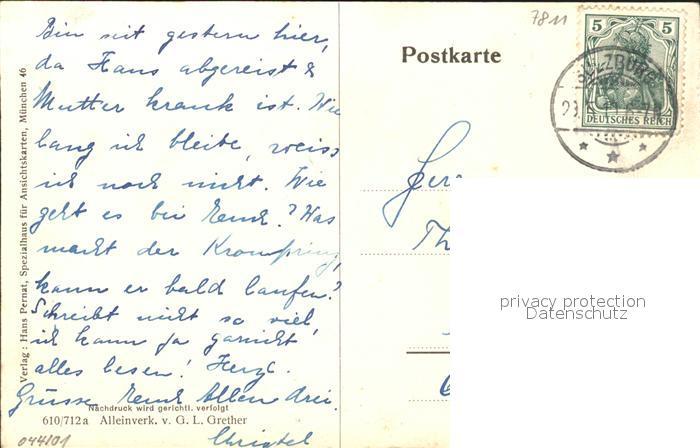 7811
Bin seit gestern hier,
da Hans abgereist &
Mutter krank ist. Wie
lang ich bleibe, weiss
ich noch nicht. Wie
geht es bei Euch? Was
macht der Kronprinz,
kann er bald laufen?
Schreibt nicht so viel,
ich kann ja garnicht
alles lesen! Herzl.
Grüsse Euch Allen drei.
Christel
Nachdruck wird gerichtl. verfolgt
610/712a Alleinverk. v. G. L. Grether
044101
Verlag: Hans Pernat, Spezialhaus für Ansichtskarten, München 46
Postkarte
5 5
DEUTSCHES REICH
Th
privacy protection
Datenschutz